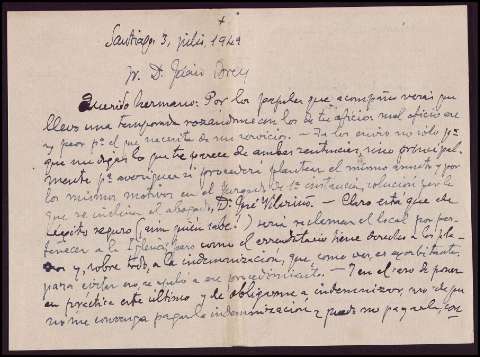 +
Santiago, 3, julio, 1949
Sr. D.
Querido hermano: Por los papeles que acompaño verás que
llevo una temporada rozándome con los de tu oficio: mal oficio era
y peor pª el que necesita de su servicio. — Te los envío no solo pª
que me digas lo que te parece de ambas sentencias, sino principal-
mente pª averiguar si procederá plantear el mismo asunto y por
los mismos motivos en el Juzgado de 1ª instancia, solución por la
que se inclina el abogado, D. José Vilariño. — Claro está que el
seguro (aún quién sabe!) sería reclamar el local por per-
tenecer a la Iglesia; pero como el arrendatario tiene derecho a los pla-
zos y, sobre todo, a la indemnización, que como ves, es exorbitante,
para evitar eso, se apeló a ese procedimiento. — Y en el caso de poner
en práctica este último y de obligarme a indemnizar, me
no me convenga pagar la indemnización y puedo no pagarla, con